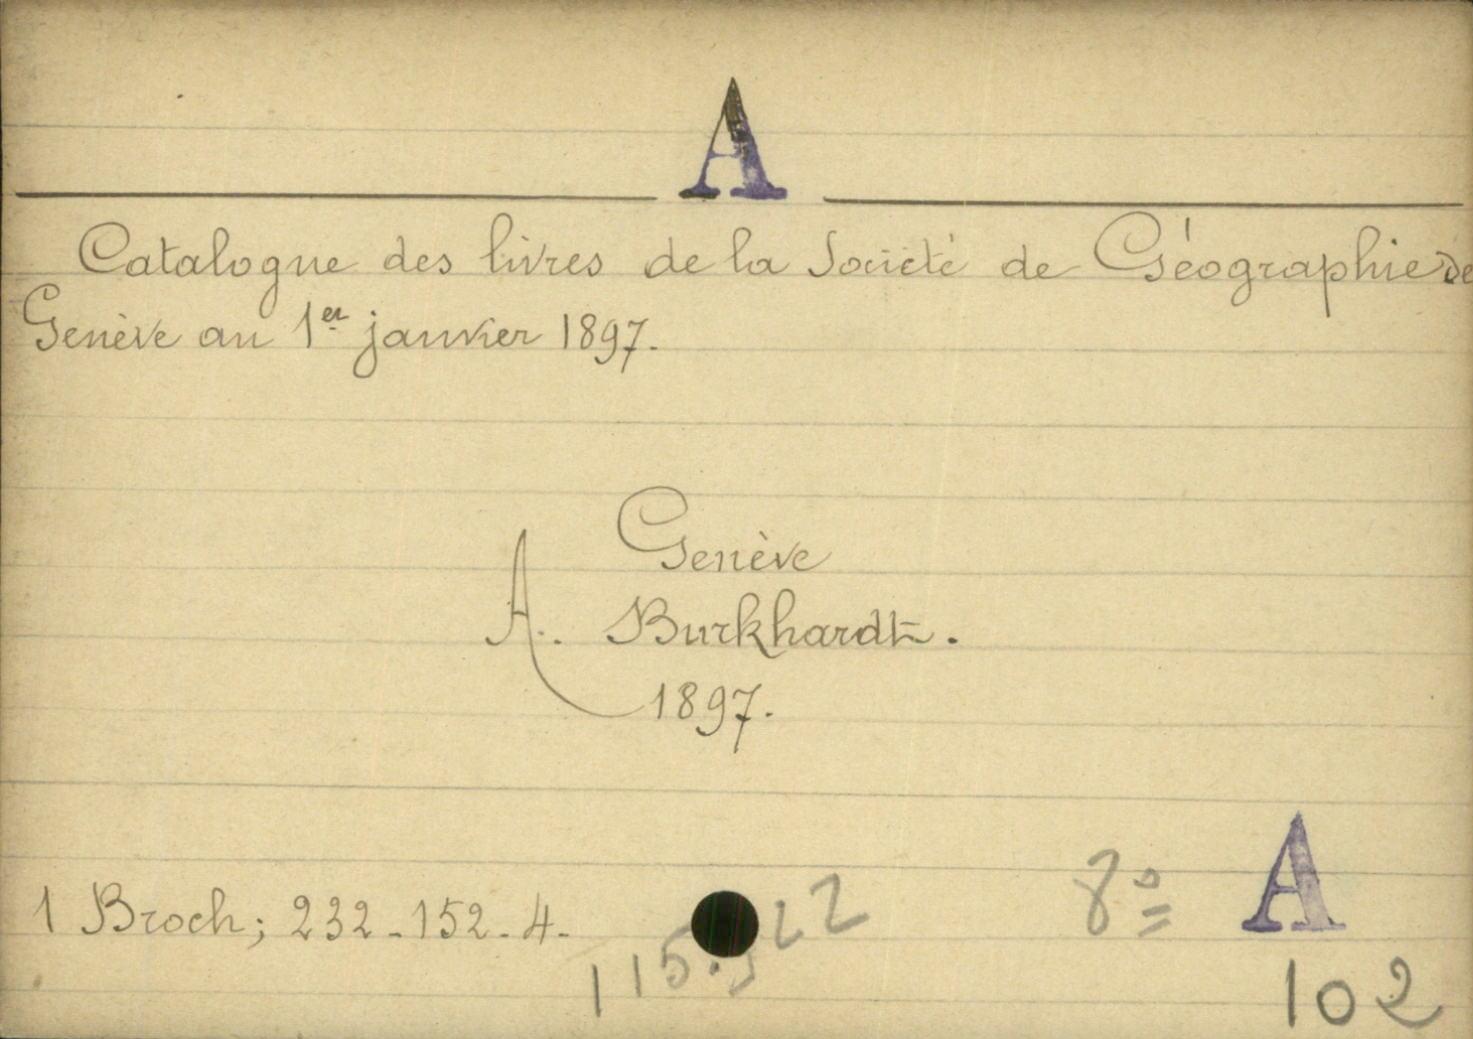 A
Catalogue des livres de la Société de Géographie de
Genève au 1er janvier 1897.
Genève
A. Burkhardt.
1897.
1 Broch; 232-152-4.
8º A
102